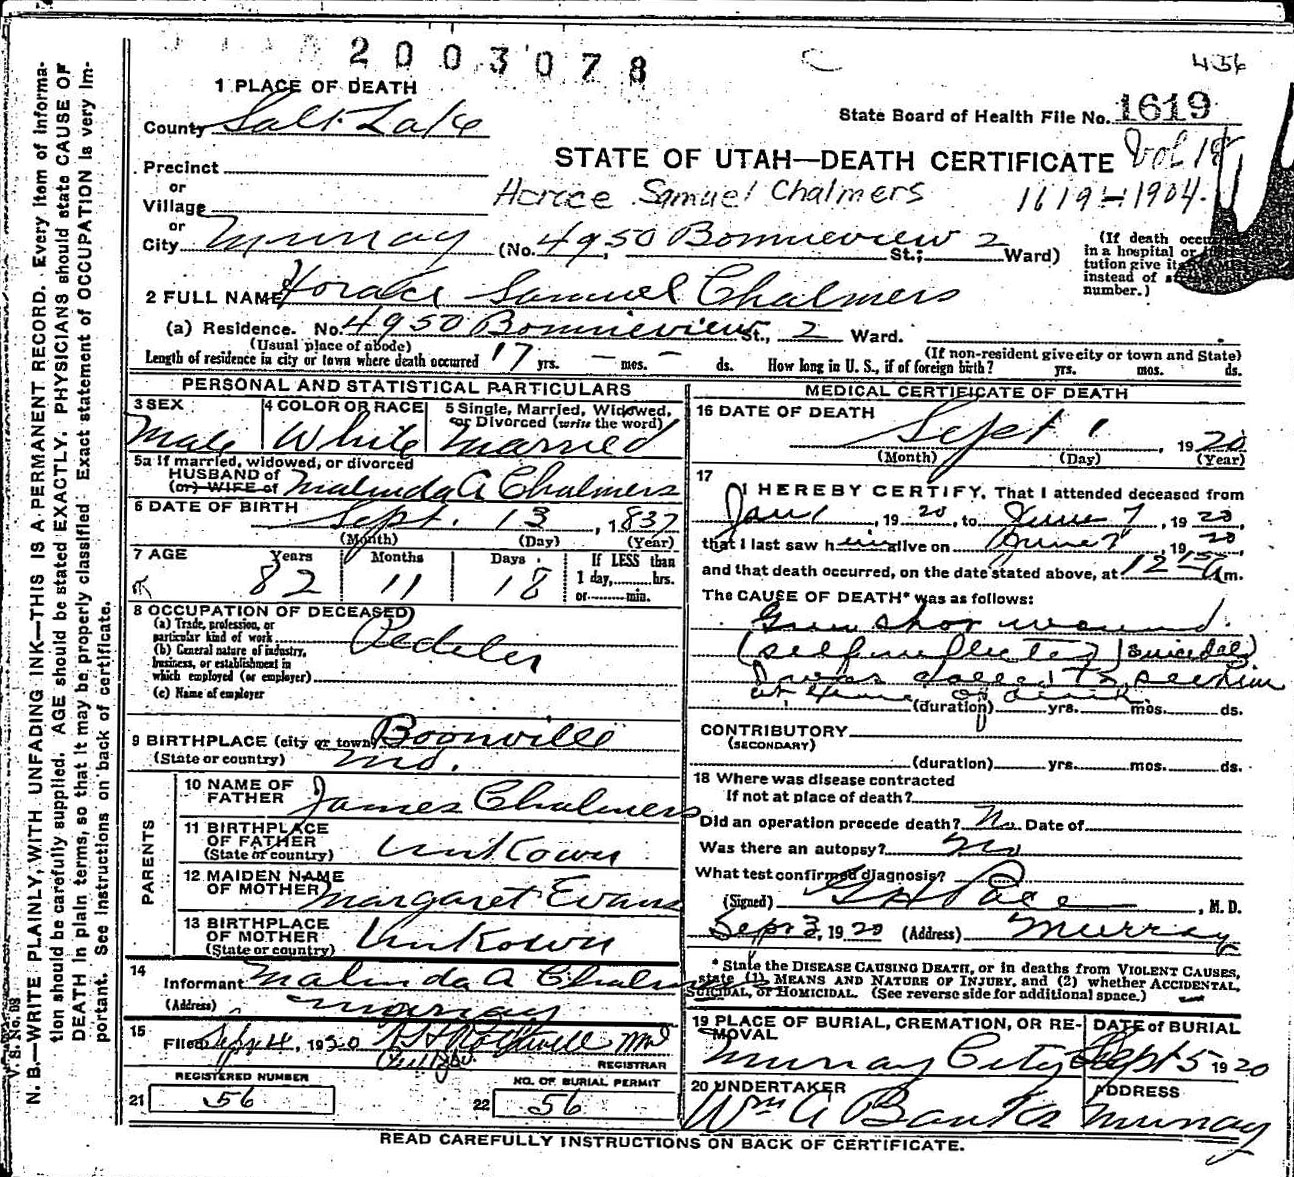 2003078
456
1 PLACE OF DEATH
State Board of Health File No. 1619
County Salt Lake
STATE OF UTAH—DEATH CERTIFICATE Vol 18
Precinct
or
Village
Horace Samuel Chalmers 1619-1904.
or
City Murray (No. 4950 Bonnieview St.; 2 Ward)
(If death occu
in a hospital or
tution give it
instead of s
number.)
2 FULL NAME Horace Samuel Chalmers
(a) Residence. No. 4950 Bonnieview St., 2 Ward.
(Usual place of abode)
(If non-resident give city or town and State)
Length of residence in city or town where death occurred 17 yrs. — mos. — ds. How long in U. S., if of foreign birth? yrs. mos. ds.
PERSONAL AND STATISTICAL PARTICULARS
3 SEX
Male
4 COLOR OR RACE
White
5 Single, Married, Widowed,
or Divorced (write the word)
Married
5a If married, widowed, or divorced
HUSBAND of
(or) WIFE of Malinda A Chalmers
6 DATE OF BIRTH
Sept. 13, 1837
(Month) (Day) (Year)
7 AGE
Years Months Days
82 11 18
If LESS than
1 day, hrs.
or min.
8 OCCUPATION OF DECEASED
(a) Trade, profession, or
particular kind of work Pedeler
(b) General nature of industry,
business, or establishment in
which employed (or employer)
(c) Name of employer
9 BIRTHPLACE (city or town) Boonville
(State or country) Mo.
PARENTS
10 NAME OF
FATHER James Chalmers
11 BIRTHPLACE
OF FATHER
(State or country) Unkown
12 MAIDEN NAME
OF MOTHER Margaret Evans
13 BIRTHPLACE
OF MOTHER
(State or country) Unkown
14
Informant Malinda A Chalm
(Address) Murray
15
Filed Sept 4, 1920
REGISTRAR
REGISTERED NUMBER
21 56
NO. OF BURIAL PERMIT
22 56
MEDICAL CERTIFICATE OF DEATH
16 DATE OF DEATH
Sept 1, 1920
(Month) (Day) (Year)
17
I HEREBY CERTIFY, That I attended deceased from
Jan 1, 1920, to June 7, 1920,
that I last saw him alive on June 7, 1920,
and that death occurred, on the date stated above, at 12 15 A m.
The CAUSE OF DEATH* was as follows:
Gun shot wound.
(self inflicted) (suicidal)
I was called
at time of
(duration) yrs. mos. ds.
CONTRIBUTORY
(SECONDARY)
(duration) yrs. mos. ds.
18 Where was disease contracted
If not at place of death?
Did an operation precede death? No Date of
Was there an autopsy? No
What test confirmed diagnosis?
(Signed) G H Pace, M. D.
Sept 3, 1920 (Address) Murray
* State the DISEASE CAUSING DEATH, or in deaths from VIOLENT CAUSES,
state (1) MEANS AND NATURE OF INJURY, and (2) whether ACCIDENTAL,
SUICIDAL, or HOMICIDAL. (See reverse side for additional space.)
19 PLACE OF BURIAL, CREMATION, OR RE-
MOVAL
Murray City
DATE of BURIAL
Sept 5 1920
20 UNDERTAKER
Wm A Banks
ADDRESS
Murray
READ CAREFULLY INSTRUCTIONS ON BACK OF CERTIFICATE.
V. S. No. 98
N. B.—WRITE PLAINLY, WITH UNFADING INK—THIS IS A PERMANENT RECORD. Every item of informa-
tion should be carefully supplied. AGE should be stated EXACTLY. PHYSICIANS should state CAUSE OF
DEATH in plain terms, so that it may be properly classified. Exact statement of OCCUPATION is very im-
portant. See instructions on back of certificate.